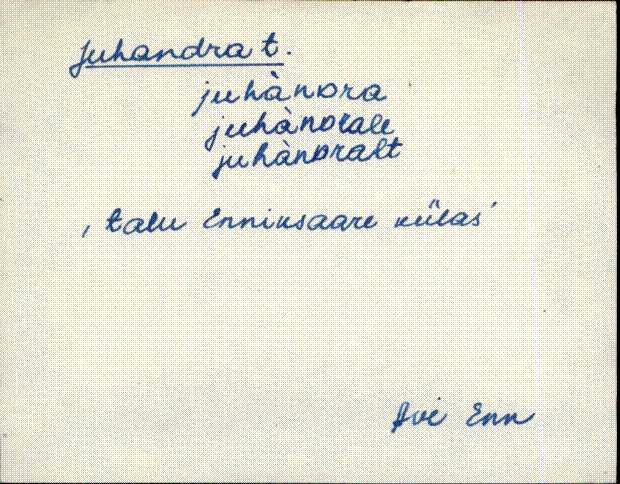 Juhandra t.
juhànDra
juhànDrale
juhànDralt
, talu Enniksaare külas'
Avi Enn